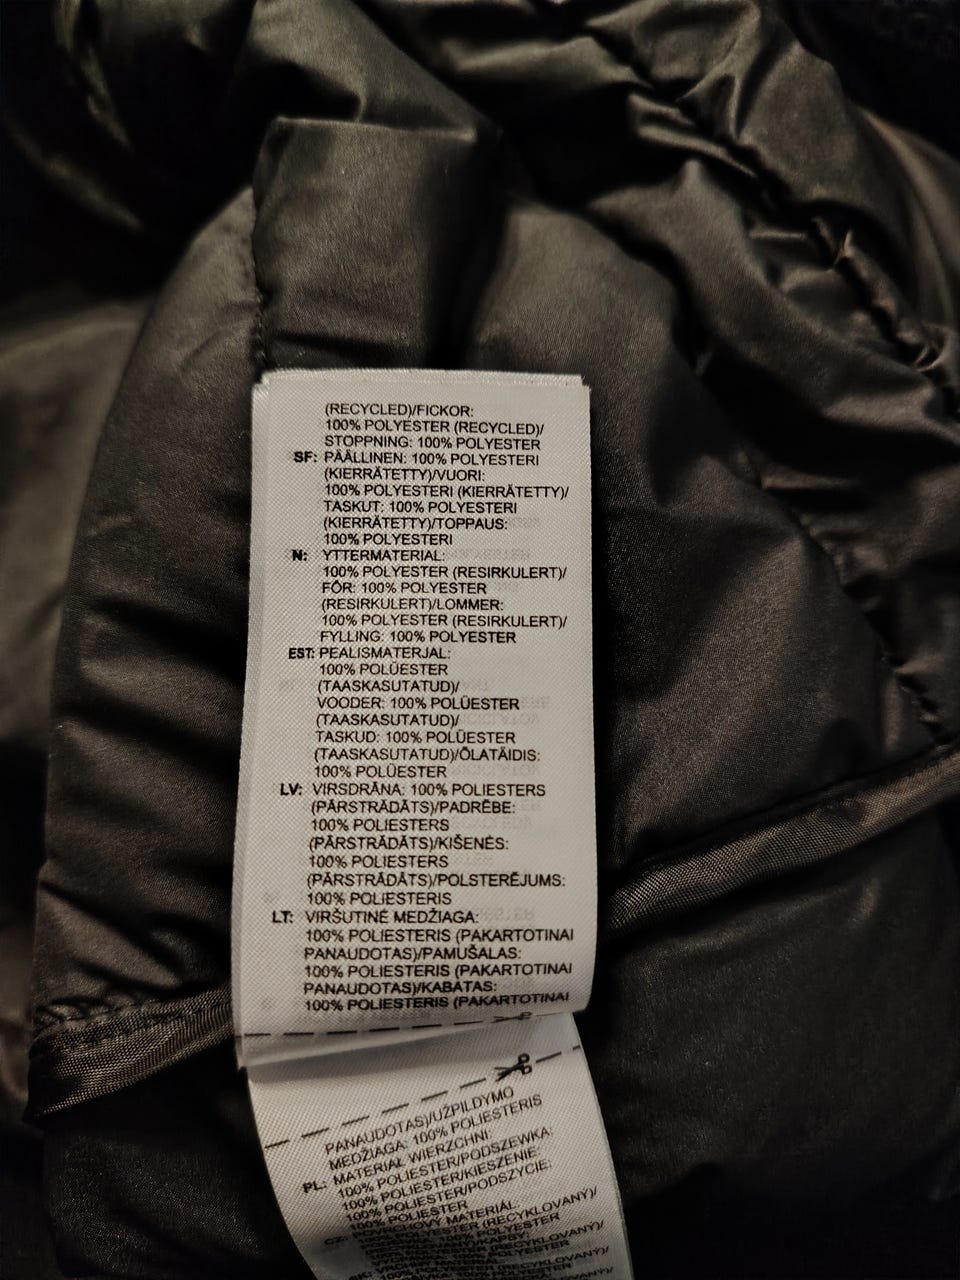 (RECYCLED)/FICKOR:
100% POLYESTER (RECYCLED)/
STOPPNING: 100% POLYESTER
SF: PÄÄLLINEN: 100% POLYESTERI
(KIERRÄTETTY)/VUORI:
100% POLYESTERI (KIERRÄTETTY)/
TASKUT: 100% POLYESTERI
(KIERRÄTETTY)/TOPPAUS:
100% POLYESTERI
N: YTTERMATERIAL:
100% POLYESTER (RESIRKULERT)/
FÔR: 100% POLYESTER
(RESIRKULERT)/LOMMER:
100% POLYESTER (RESIRKULERT)/
FYLLING: 100% POLYESTER
EST: PEALISMATERJAL:
100% POLÜESTER
(TAASKASUTATUD)/
VOODER: 100% POLÜESTER
(TAASKASUTATUD)/
TASKUD: 100% POLÜESTER
(TAASKASUTATUD)/ÕLATÄIDIS:
100% POLÜESTER
LV: VIRSDRĀNA: 100% POLIESTERS
(PĀRSTRĀDĀTS)/PADRĒBE:
100% POLIESTERS
(PĀRSTRĀDĀTS)/KIŠENĒS:
100% POLIESTERS
(PĀRSTRĀDĀTS)/POLSTERĒJUMS:
100% POLIESTERIS
LT: VIRŠUTINĖ MEDŽIAGA:
100% POLIESTERIS (PAKARTOTINAI
PANAUDOTAS)/PAMUŠALAS:
100% POLIESTERIS (PAKARTOTINAI
PANAUDOTAS)/KABATAS:
100% POLIESTERIS (PAKARTOTINAI
PANAUDOTAS)/UŽPILDYMO
MEDŽIAGA: 100% POLIESTERIS
PL: MATERIAŁ WIERZCHNI:
100% POLIESTER/PODSZEWKA:
100% POLIESTER/KIESZENIE:
100% POLIESTER/PODSZYCIE:
100% POLIESTER
CZ: POVRCHOVÝ MATERIÁL:
POLYESTER (RECYKLOVANÝ)/
100% POLYESTER
(RECYKLOVANÝ)/
POLYESTER
(RECYKLOVANÝ)/